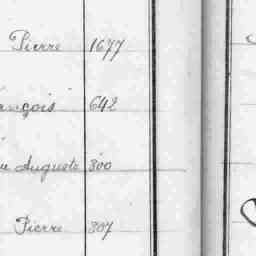 Pierre 1677
ançois 642
Auguste 800
Pierre 807